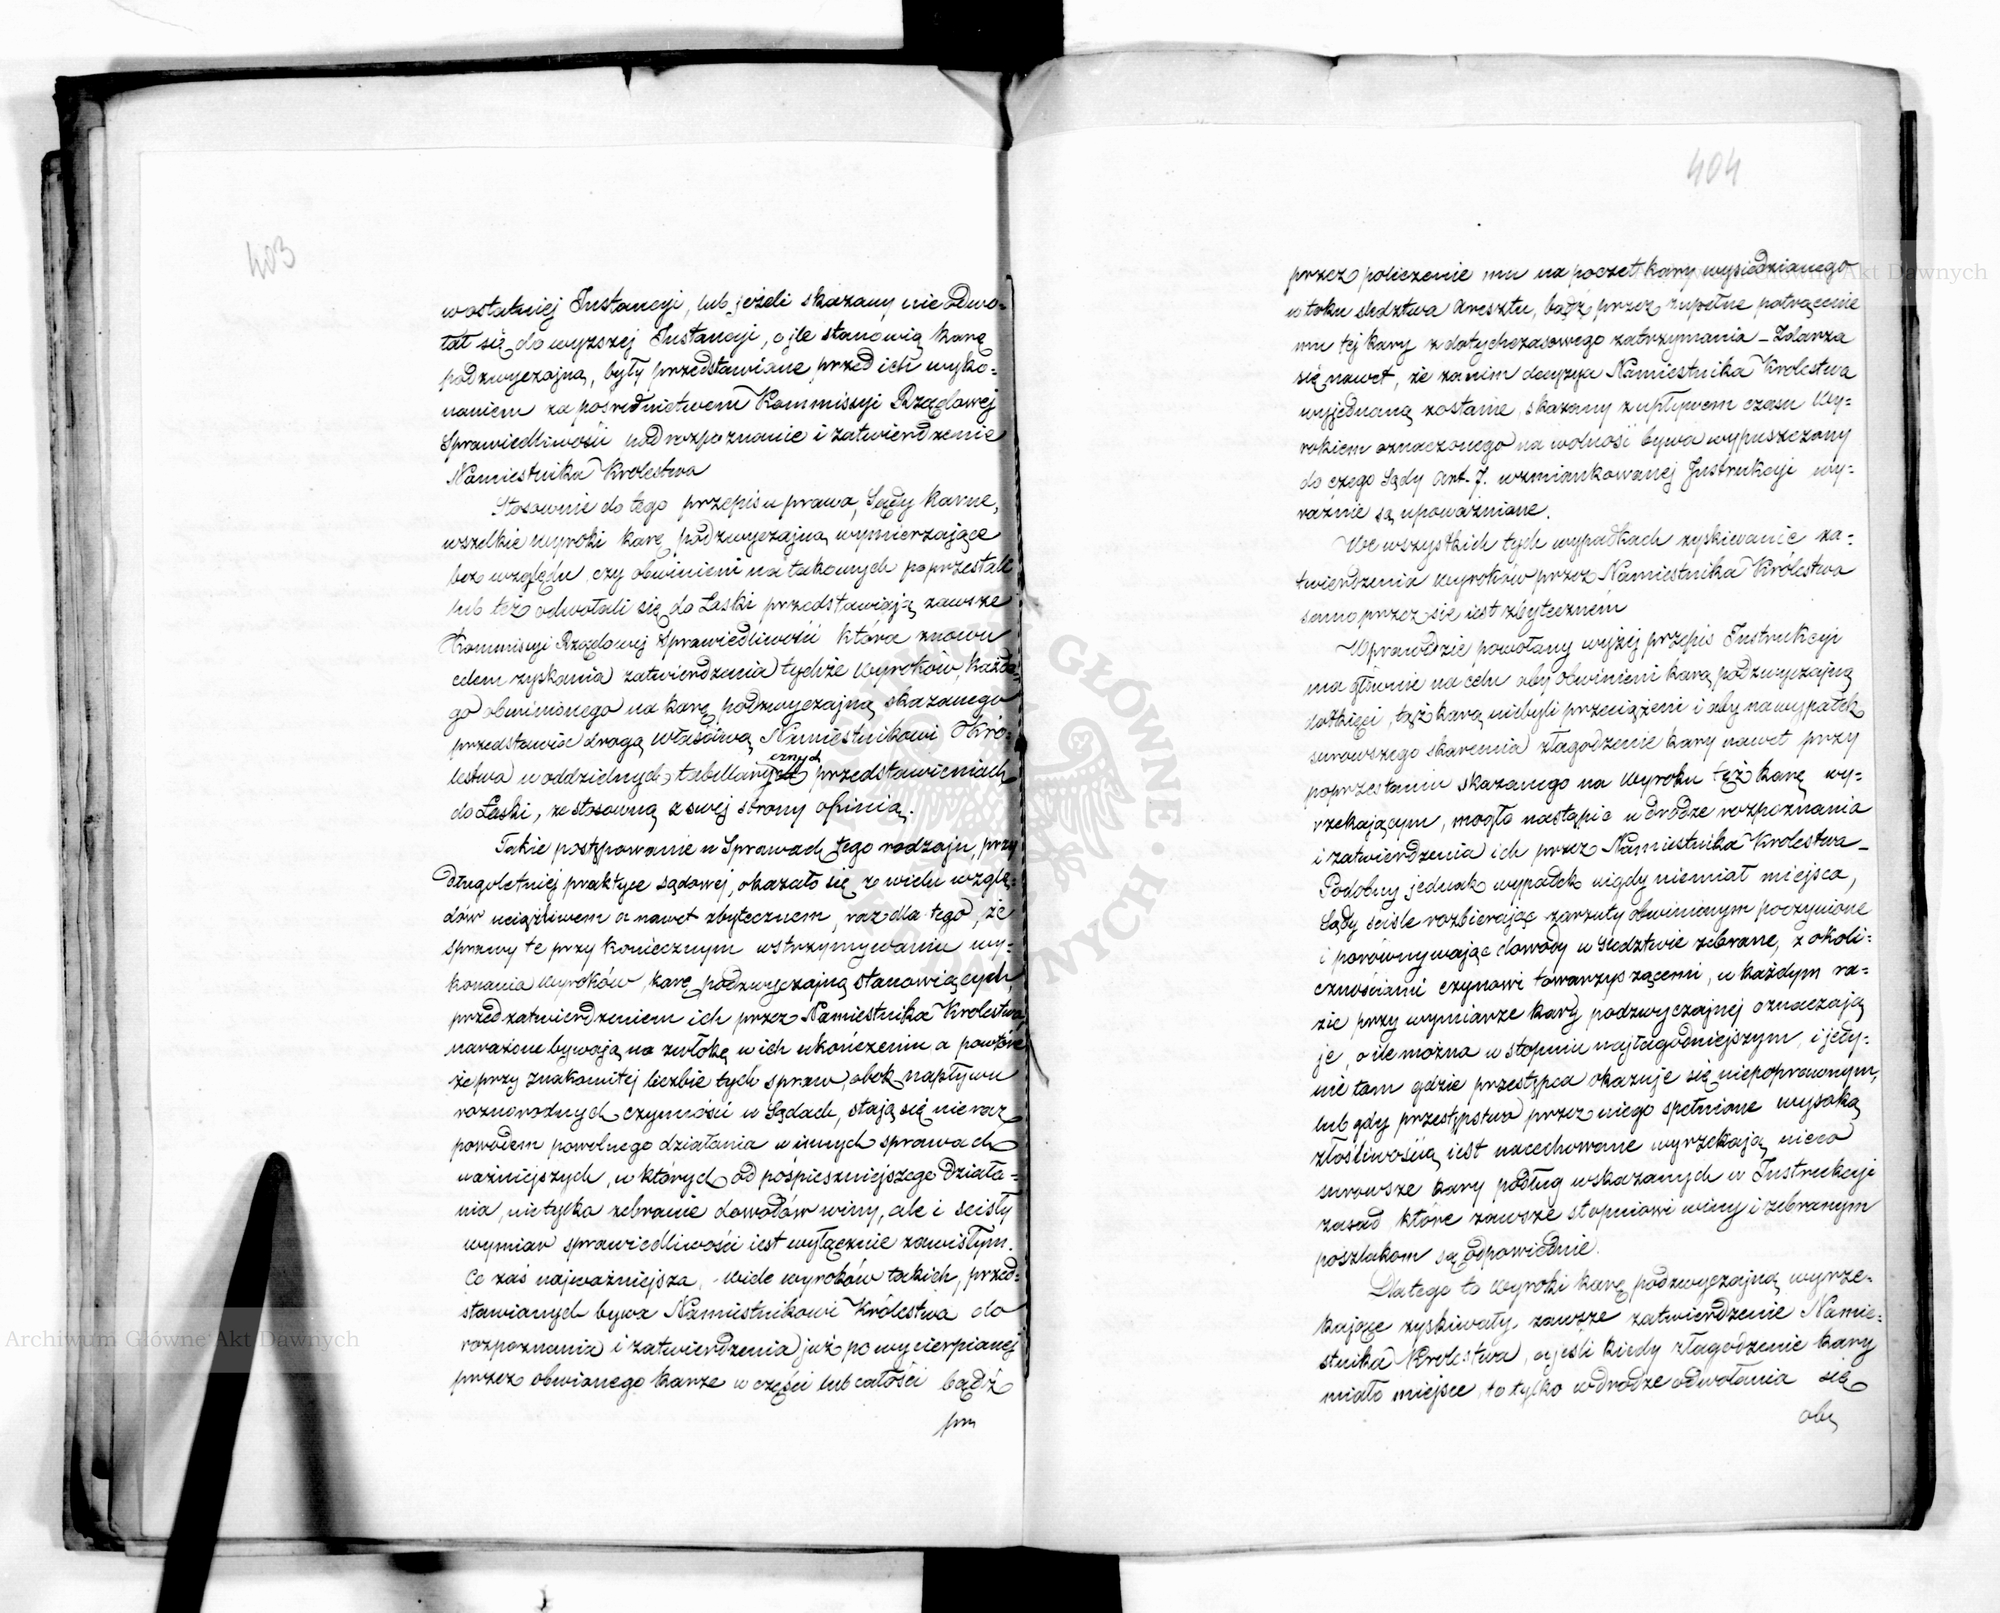 403
w ostatniej Instancyi, lub jeżeli skazany nie odwo-
łał się do wyższej Instancyi, o ile stanowią karę
podzwyczajną, były przedstawiane, przed ich wyko-
naniem za pośrednictwem Kommissyi Rządowej
Sprawiedliwości pod rozpoznanie i zatwierdzenie
Namiestnika Krolestwa
Stosownie do tego przepisu prawa, Sądy karne,
wszelkie wyroki karę podzwyczajną wymierzające
bez względu, czy obwinieni na takowych poprzestali
lub też odwołali się do Łaski przedstawiają zawsze
Kommissyi Rządowej Sprawiedliwości która znowu
celem zyskania zatwierdzenia tychże wyroków, każde-
go obwinionego na karę podzwyczajną skazanego
przedstawia drogą właściwą Namiestnikowi Kró-
lestwa w oddzielnych tabellarycznych przedstawieniach
do Łaski, ze stosowną z swej strony opinią.
Takie postępowanie w Sprawach tego rodzaju, przy
długoletniej praktyce sądowej, okazało się z wielu wzglę-
dów uciążliwem a nawet zbytecznem, raz dla tego, że
sprawy te przy koniecznym wstrzymywaniu wy-
konania wyroków, karę podzwyczajną stanowiących,
przed zatwierdzeniem ich przez Namiestnika Krolestwa,
narażone bywają na zwłokę w ich ukończeniu a powtóre
że przy znakomitej liczbie tych spraw, obok napływu
roznorodnych czynności w Sądach, stają się nie raz
powodem powolnego działania w innych sprawach
ważniejszych, w których od pośpieszniejszego działa-
nia, nietylko zebranie dowodów winy, ale i scisły
wymiar sprawiedliwości iest wyłącznie zawisłym.
Co zaś najważniejsza, - wiele wyroków takich, przed-
stawianych bywa Namiestnikowi Królestwa do
rozpoznania i zatwierdzenia już po wycierpianej
przez obwianego karze w części lub całości bądź
404
przez policzenie mu na poczet kary wysiedzianego
w toku śledztwa aresztu, bądź przez zupełne potrącenie
mu tej kary z dotychczasowego zatrzymania - Zdarza
się nawet, że zanim decyzya Namiestnika Krolestwa
wyjednaną zostanie, skazany z upływem czasu wy-
rokiem oznaczonego na wolność bywa wypuszczany
do czego Sądy art. 7. wzmiankowanej Instrukcyi wy-
raźnie są upoważnione.
We wszystkich tych wypadkach zyskiwanie za-
twierdzenia wyroków przez Namiestnika Królestwa
samo przez się iest zbytecznem
Wprawdzie powołany wyżej przepis Instrukcyi
ma głównie na celu aby obwinieni karą podzwyczajną
dotknięci, tąż karą niebyli przeciążeni i aby na wypadek
surowszego skarania złagodzenie kary nawet przy
poprzestaniu skazanego na wyroku tęż karę wy-
rzekającym, mogło nastąpić w drodze rozpoznania
i zatwierdzenia ich przez Namiestnika Krolestwa -
Podobny jednak wypadek nigdy niemiał miejsca,
Sądy sciśle rozbierając zarzuty obwinionym poczynione
i porównywając dowody w śledztwie zebrane, z okoli-
cznościami czynowi towarzyszącemi, w każdym ra-
zie przy wymiarze kary podzwyczajnej oznaczają
je, o ile można w stopniu najłagodniejszym, i jedy-
nie tam gdzie przestępca okazuje się niepoprawnym,
lub gdy przestępstwo przez niego spełnione wysoką
złośliwością iest nacechowane wyrzekają nieco
surowsze kary podług wskazanych w Instrukcyi
zasad które zawsze stopniowi winy i zebranym
poszlakom są odpowiednie.
Dlatego to wyroki karę podzwyczajną wyrze-
kające zyskiwały zawsze zatwierdzenie Namie-
stnika Krolestwa, a jeśli kiedy złagodzenie kary
miało miejsce, to tylko w drodze odwołania się